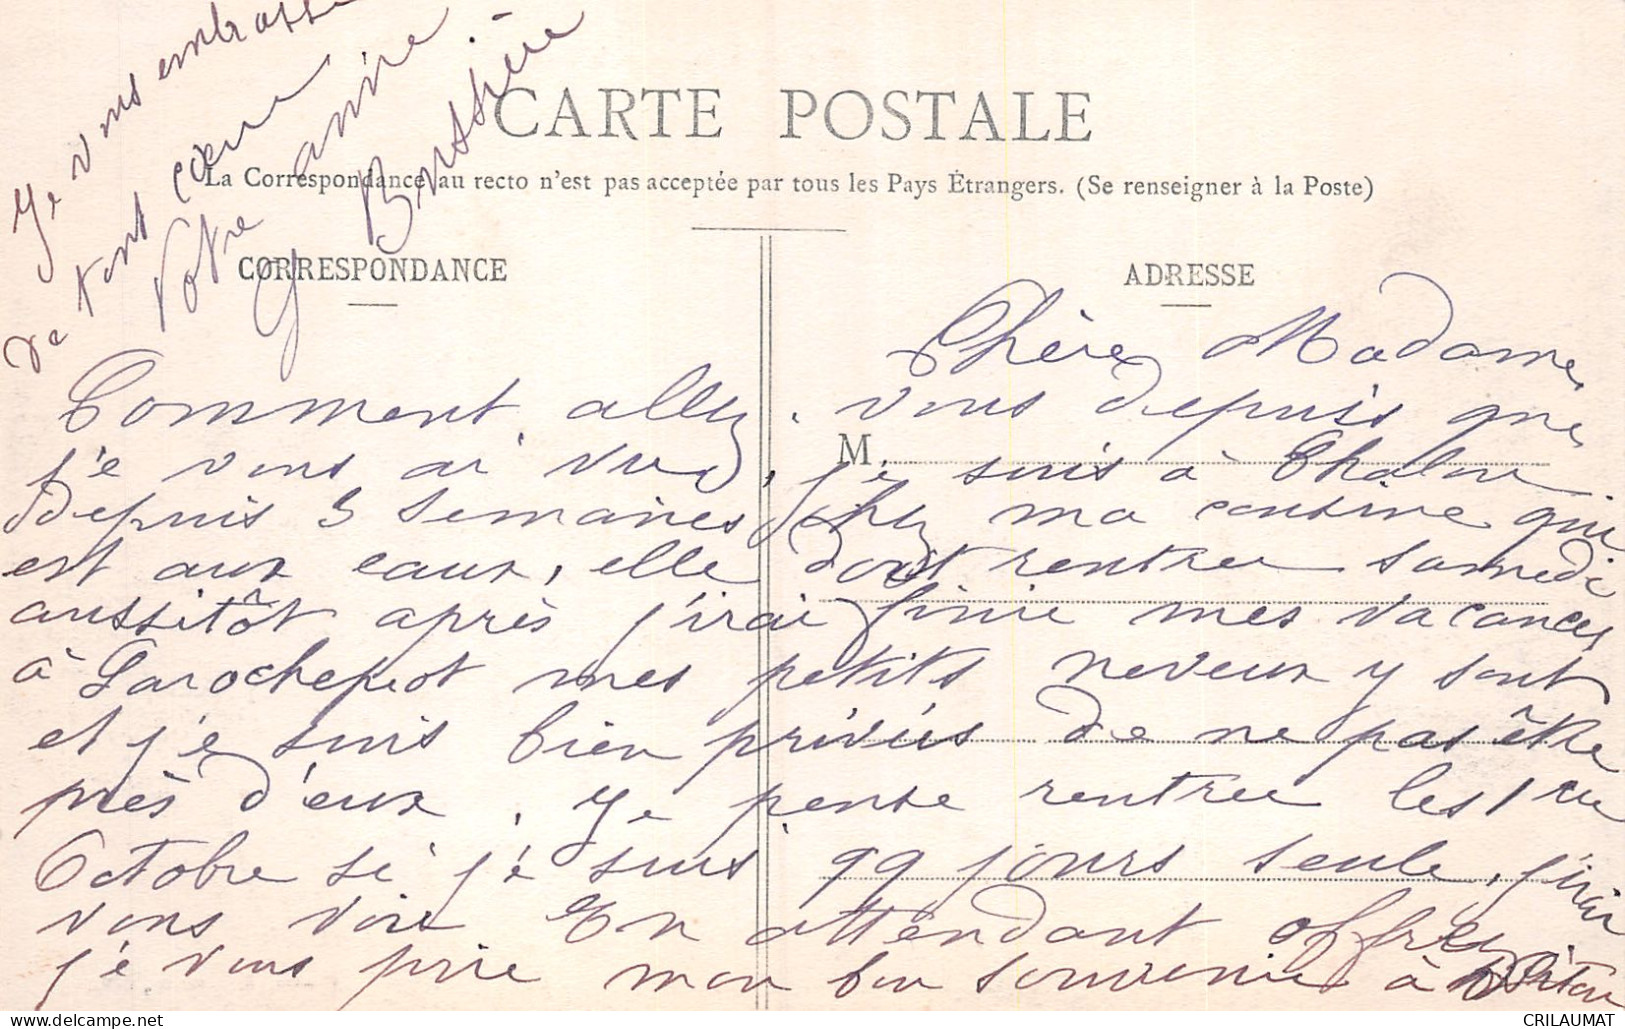 CARTE POSTALE
La Correspondance au recto n'est pas acceptée par tous les Pays Étrangers. (Se renseigner à la Poste)
CORRESPONDANCE
ADRESSE
M
Chère Madame,
Comment allez vous depuis que
je vous ai vue, je suis à Chalon
depuis 3 semaines chez ma cousine qui
est aux eaux, elle doit rentrer samedi
aussitôt après j'irai finir mes vacances
à Larochepot mes petits neveux y sont
et je suis bien privés de ne pas être
près d'eux, Je pense rentrer les 1er
Octobre si je suis qq jours seule, j'irai
vous voir En attendant offrez
je vous prie mon bon souvenir à
Je vous embrasse
de tout cœur
Votre amie
G Bussière
CRILAUMAT